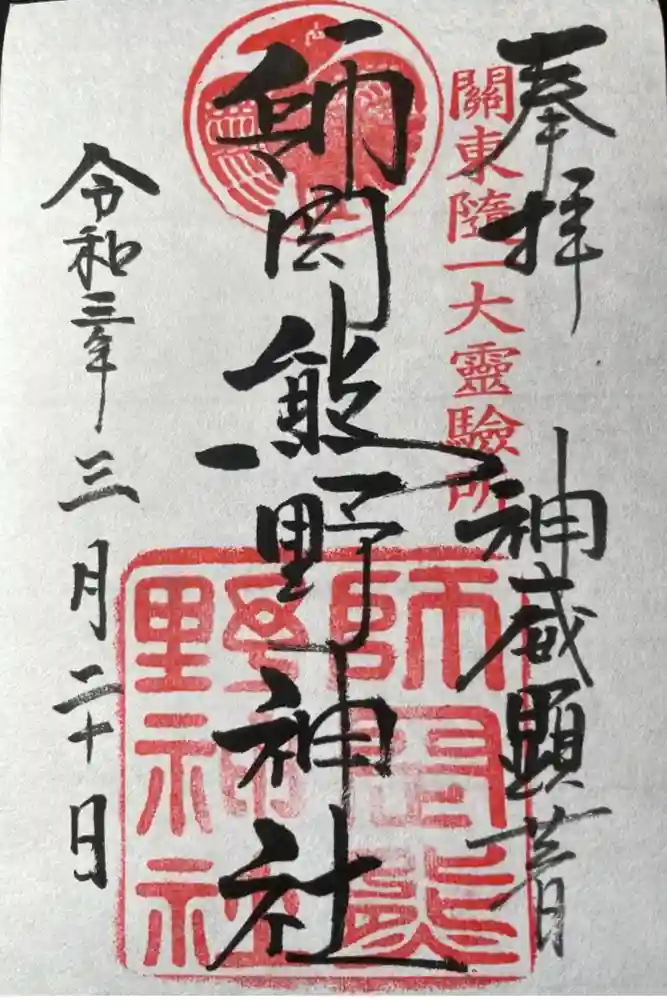 奉拝
神威顕著
關東隨一大靈驗所
師岡熊野神社
令和三年三月二十日
師岡熊
野神社